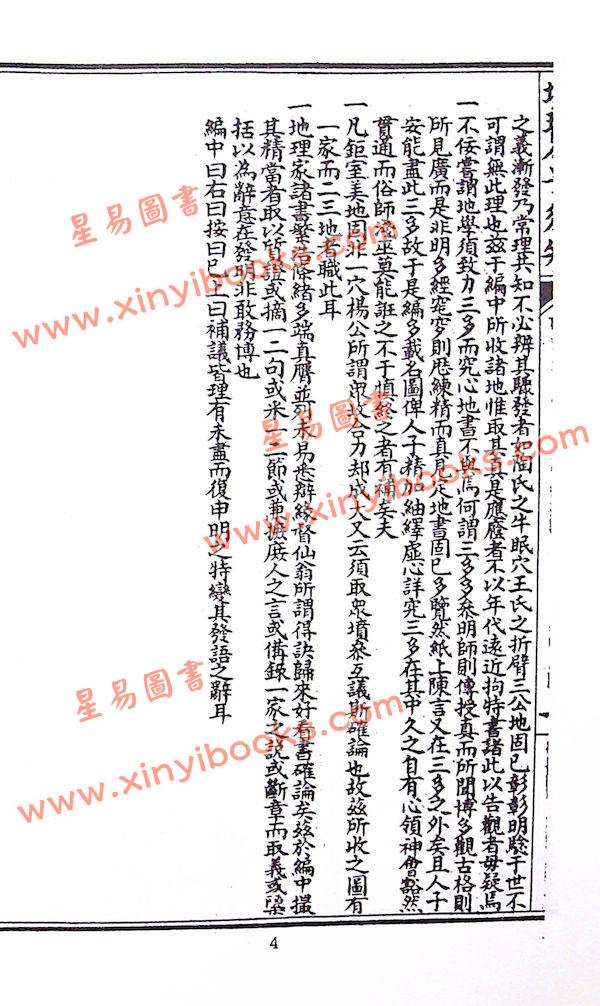 之義漸發乃常理共知不必辨其驟發者如陶氏之牛眠穴王氏之折臂三公地固已彰彰明驗于世不
可謂無此理也茲于編中所收諸地惟取其真是應廕者不以年代遠近拘特書諸此以告觀者毋疑焉
一不佞嘗謂地學須致力三多而究心地書不與焉何謂三多多叅明師則傳授真而所聞博多觀古格則
所見廣而是非明多經窀穸則歷練精而真見定地書固已多覽然紙上陳言又在三多之外矣且人子
安能盡此三多故于是編多載名圖俾人子精加紬繹虛心詳究三多在其中久之自有心領神會豁然
貫通而俗師淫巫莫能誑之不于慎終之者有補矣夫
一凡鉅室美地固非一穴楊公所謂眾故合力却成大又云須取眾墳叅互議斯確論也故茲所收之圖有
一家而二三地者職此耳
一地理家諸書繁浩條緒多端真贋並列未易悉辯緣督仙翁所謂得訣歸來好看書確論矣茲於編中撮
其精當者取以所證或摘一二句或采一二節或兼撫庶人之言或備錄一家之說或斷章而取義或檃
括以為辭意在發明非敢務博也
編中曰右曰按曰已上曰補議皆理有未盡而復申明之特變其發語之辭耳
星易圖書
www.xinyibooks.com
星易圖書
www.xinyibooks.com
星易圖書
www.xinyibooks.com
4